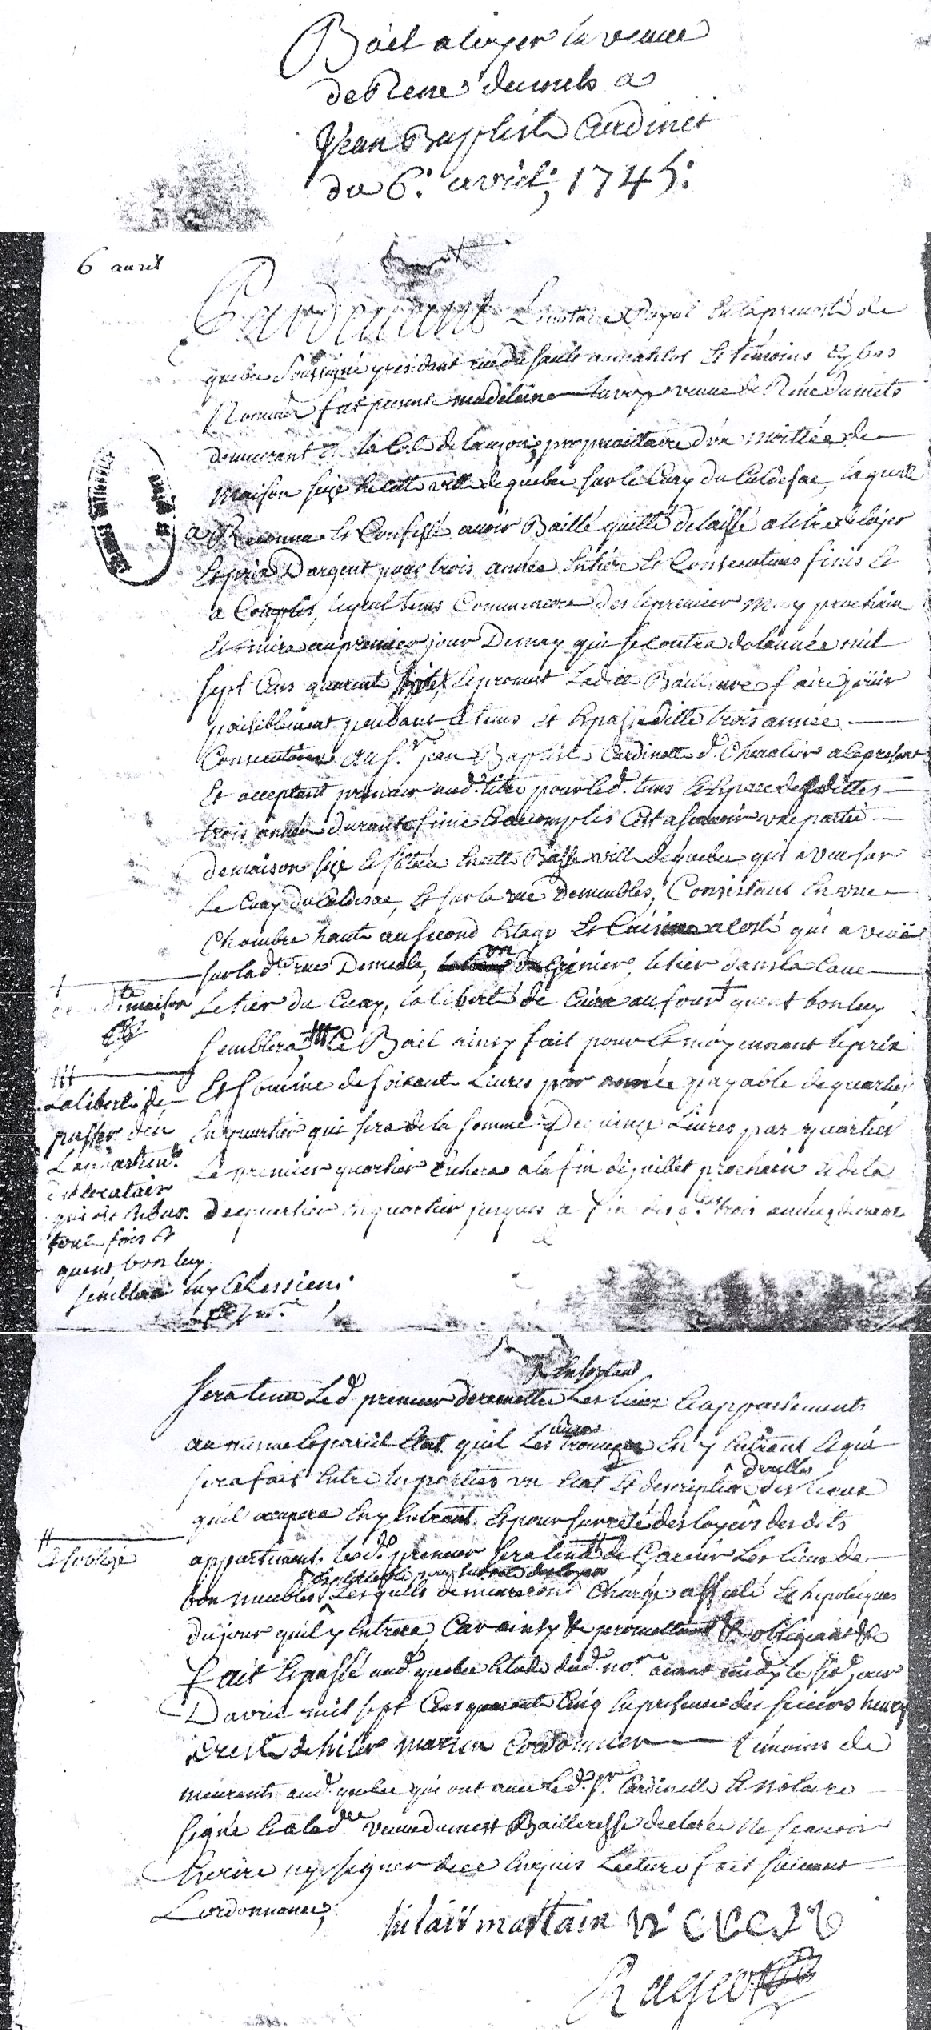 Bail a loyer la veuve
de Rene dumets a
Jean Baptiste Cardinet
du 6: avril; 1745:
6 avril
Pardevant Le notaire Royal en la prevosté de
quebec soussigné y residant rue du sault au matelot et témoins cy bas
Nommés fut presente madeleine veuve de Réné dumets
demeurant a la Coste de lauzon, propriaittaire d'un moittiée de
maison size en cette ville de quebec sur le Quay du Culdesac, laquelle
a Reconnu et Confessé avoir Baillé quitté delaissé a titre de loyer
et prix D'argent pour trois année entiere et Consecutives finis et
a Complis, lequel tems Commencera des le premier may prochain
et finira au premier jour De may qui se contera de l'année mil
sept cens quarente huit et promet Ladite Bailleure faire jouir
paisiblement pendant le tems et Espasse dille trois année
Consecutives au Sr jean Baptiste Cardinette dt Chevalier a ce present
Et acceptant preneur aud. titre pour led. tems et Espace desdittes
trois années durante finie et accomplies C'est a scavoir une partie
de maison size et située en cette Basse ville de quebec qui a veue sur
Le Quay du Culdesac, et sur la rue Demeulles, Consistant en une
Chambre haute au second Etage et Cuisine a costé qui a veüe
sur lad. rue Demeule, un Grenier, le tier dans la Cave
Le tier du Quay, la liberté de Cuire au four quant bon luy
semblera, Ce Bail ainsy fait pour et moyennant le prix
Et Somme de soixante Livres par année payable de quartier
en quartier qui sera de la somme De quinze Livres par quartier
Le premier quartier Echera a la fin de juillet prochain et de la
De quartier en quartier jusques a fin des d. trois année
maison
La liberté de
passer dans
L'apartem.
locataire
toute fois et
quens bon luy
semblera luy et les siens
sera tenu Led. preneur de remettre en sortant Les lieux et appartements
au même et pareil Etat quil Les trouvera En y Entrant et qui
sera fait Entre les parties un Etat et description d'iceelles des lieux
qu'il occupera En y Entrant, et pour sureté des loyers des dits
appartement led. preneur sera tenu de Garnir Les lieux de
bon meubles Lesquelle demeureront Chargé affecté et hipotequés
du jour quil y Entrera Car ainsy &c promettant &c obligeant &c
Fait et passé aud. quebec Etude dud. nore avant midy le sixe jour
D'avril mil sept Cens quarente Cinq en presence des sieurs
et hiler martin Cordonnier témoins de
meurants aud. quebec qui ont avec led. Sr. Cardinelle et notaire
signé et a lad. veuve dumest Bailleresse declaré ne scavoir
Ecrire ny signer de ce Enquis Lecture fait suivant
L'ordonnance,
hilair martain
Rageot